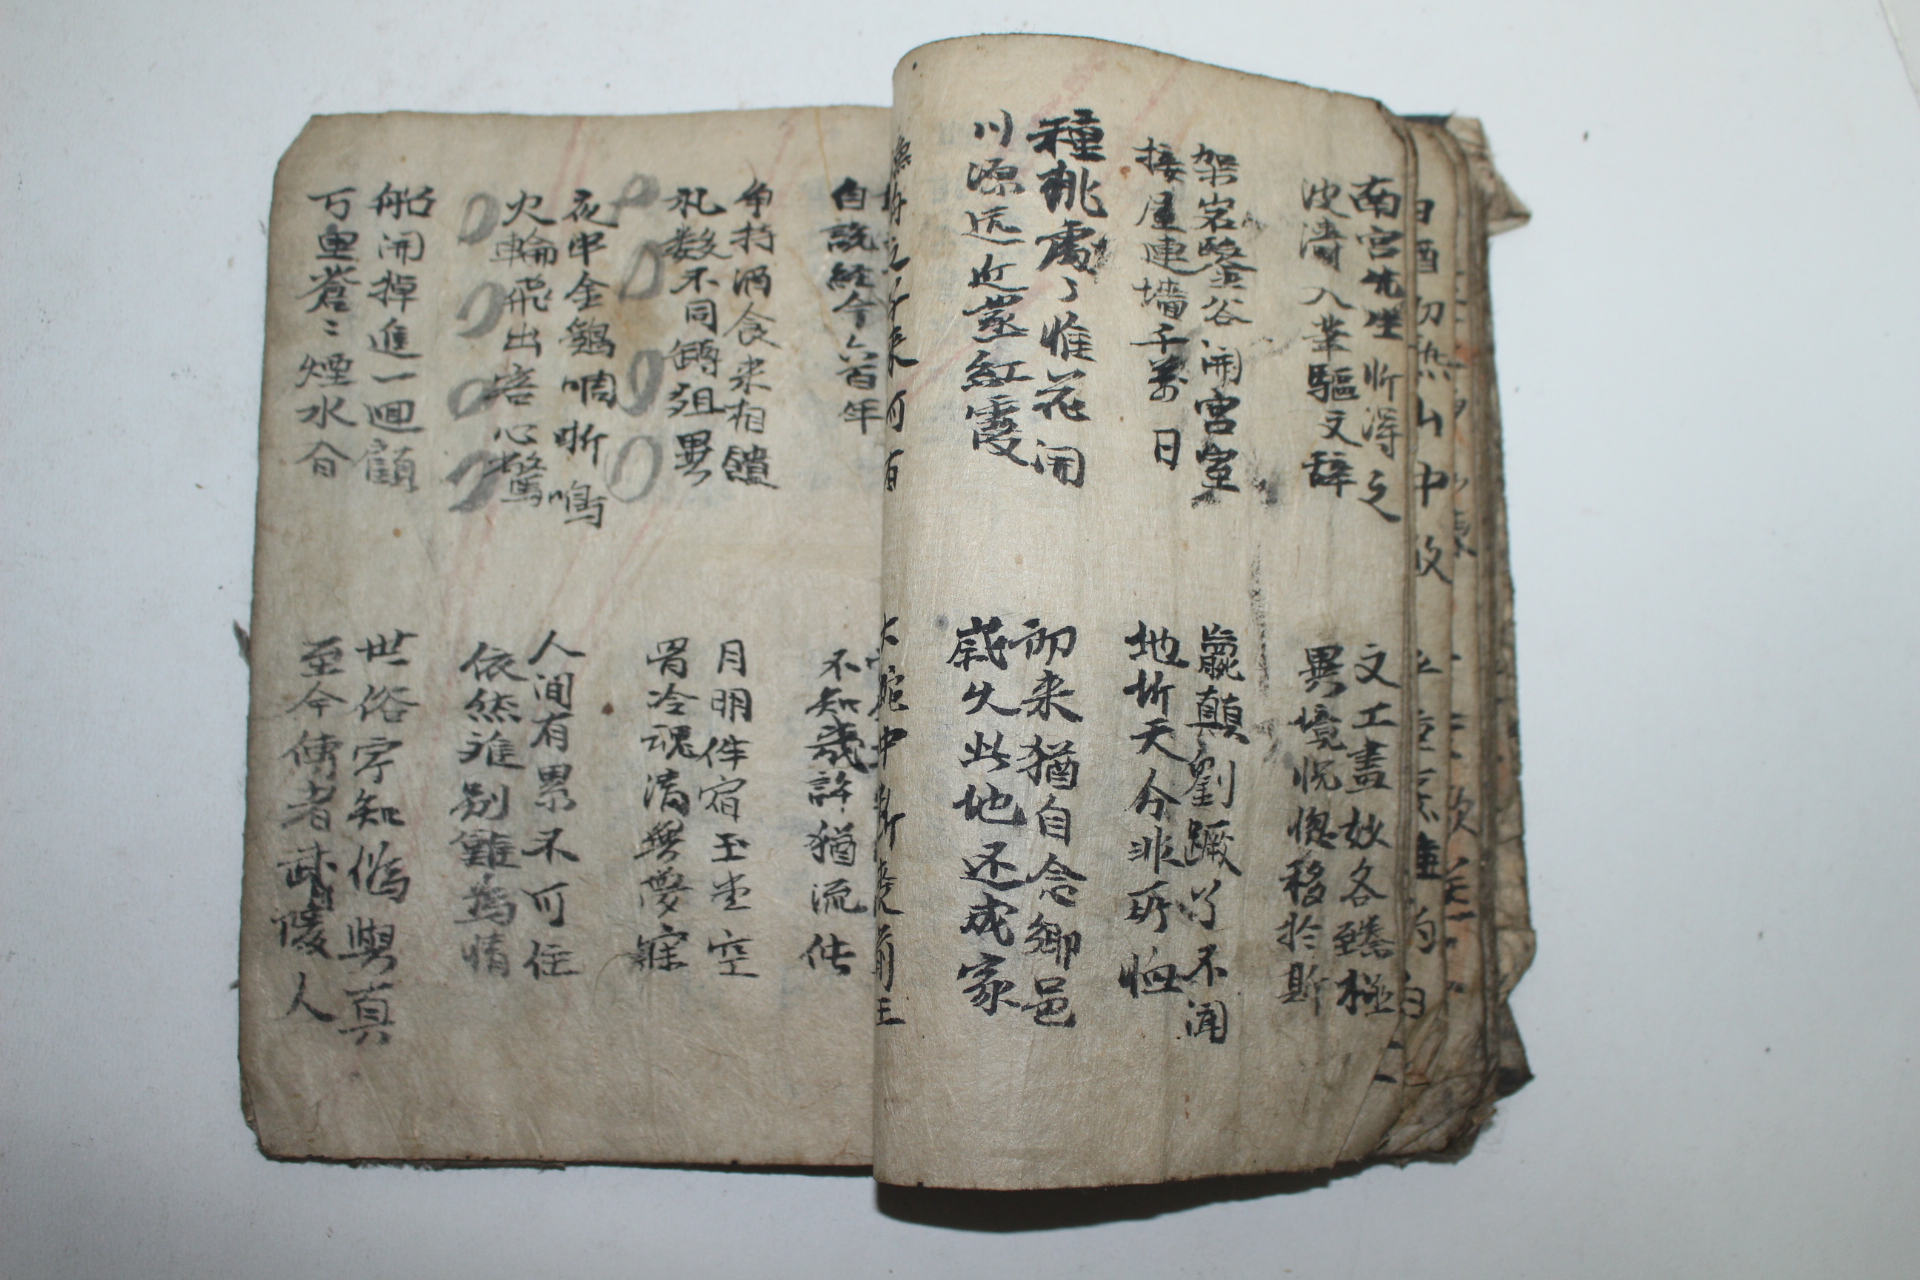 南宮先生忻得之
波濤入筆驅文辞
文工畫妙各臻極
異境恍惚移於斯
架岩鑿谷開宮室
接屋連墻千萬日
嬴顛劉蹶了不聞
地坼天分非所恤
種桃處ㇳ惟花開
川源远近蒸紅霞
初来猶自念鄉邑
歲久此地还成家
自說經今六百年
不知幾許猶流传
争持酒食来相饋
礼数不同罇俎異
月明伴宿玉堂空
骨冷魂清無夢寐
夜中金鷄啁哳鳴
火輪飛出客心驚
人間有累不可住
依然難別難為情
船開掉進一迴顧
万里蒼〻煙水合
世俗宁知僞與真
至今傳者武陵人